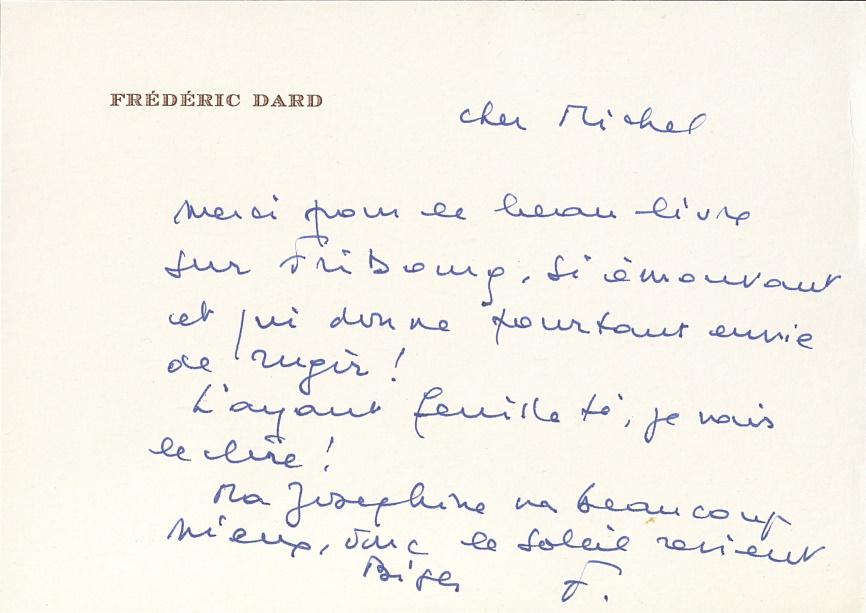 FRÉDÉRIC DARD
cher Michel
Merci pour le beau livre
sur Fribourg, si émouvant
et qui donne pourtant envie
de rugir !
L'ayant feuilleté, je vais
le lire !
Ma Joséphine va beaucoup
mieux, donc le soleil revient
Bises F.